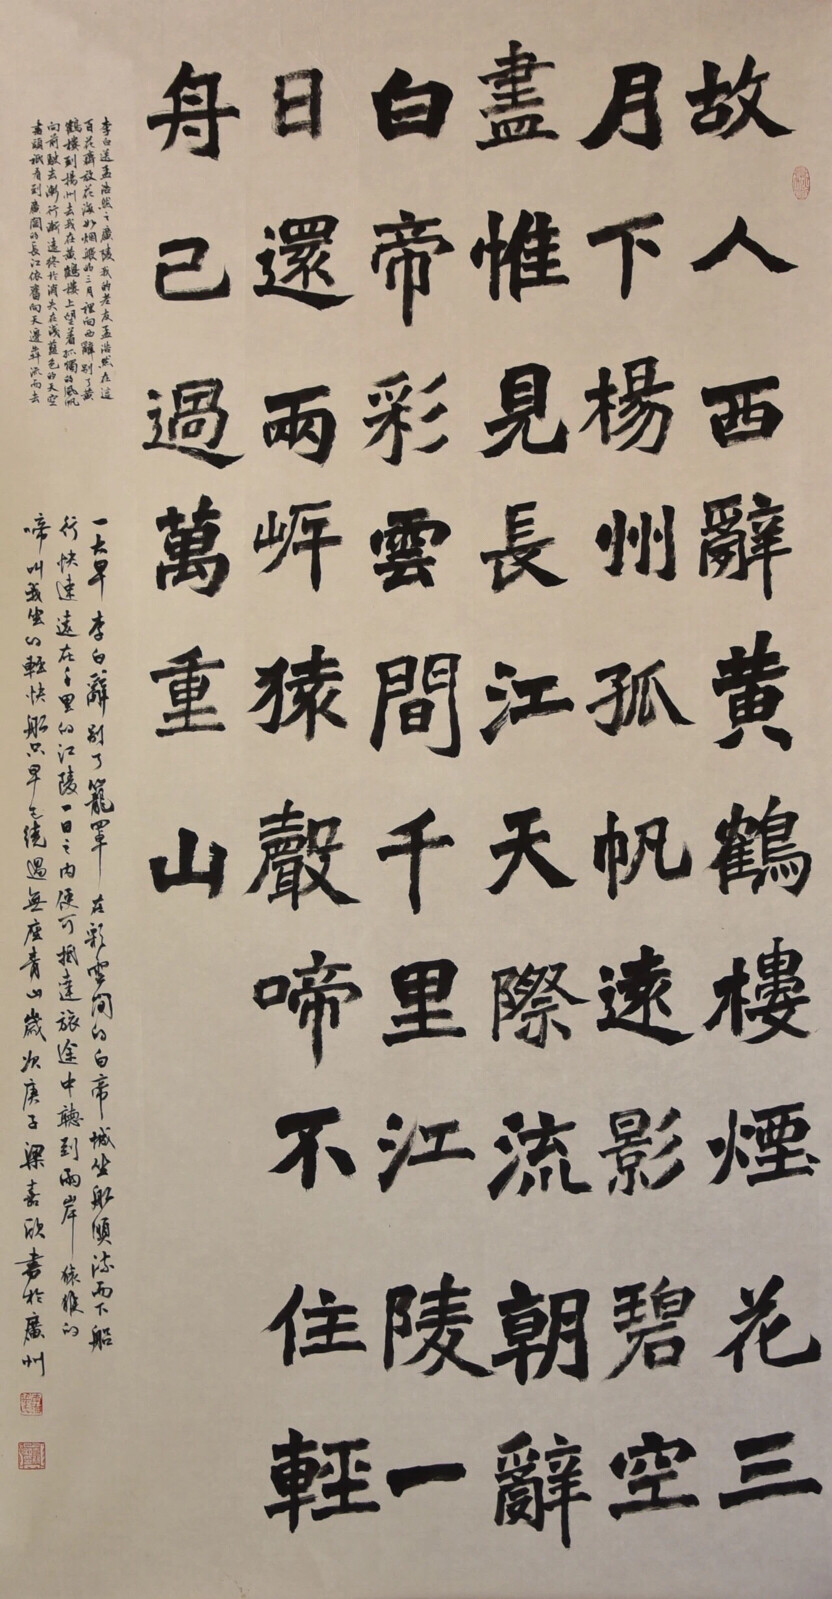 故人西辭黃鶴樓煙花三
月下楊州孤帆遠影碧空
盡惟見長江天際流朝辭
白帝彩雲間千里江陵一
日還兩岸猿聲啼不住輕
舟已過萬重山
李白送孟浩然之廣陵我的老友孟浩然在這
百花齊放花海如烟般的三月裡向西辭别了黃
鶴樓到揚州去我在黃鶴樓上望着孤獨的風帆
向前駛去漸行漸遠終於消失在淺藍色的天空
看到廣闊的長江依舊向天邊奔流而去
一大早李白辭别了籠罩在彩雲间的白帝城坐船順流而下船
行快速遠在千里的江陵一日之内便可抵達旅途中聽到兩岸猿猴的
啼叫我坐的輕快船只早已繞過無座青山歲次庚子梁嘉欣書於廣州